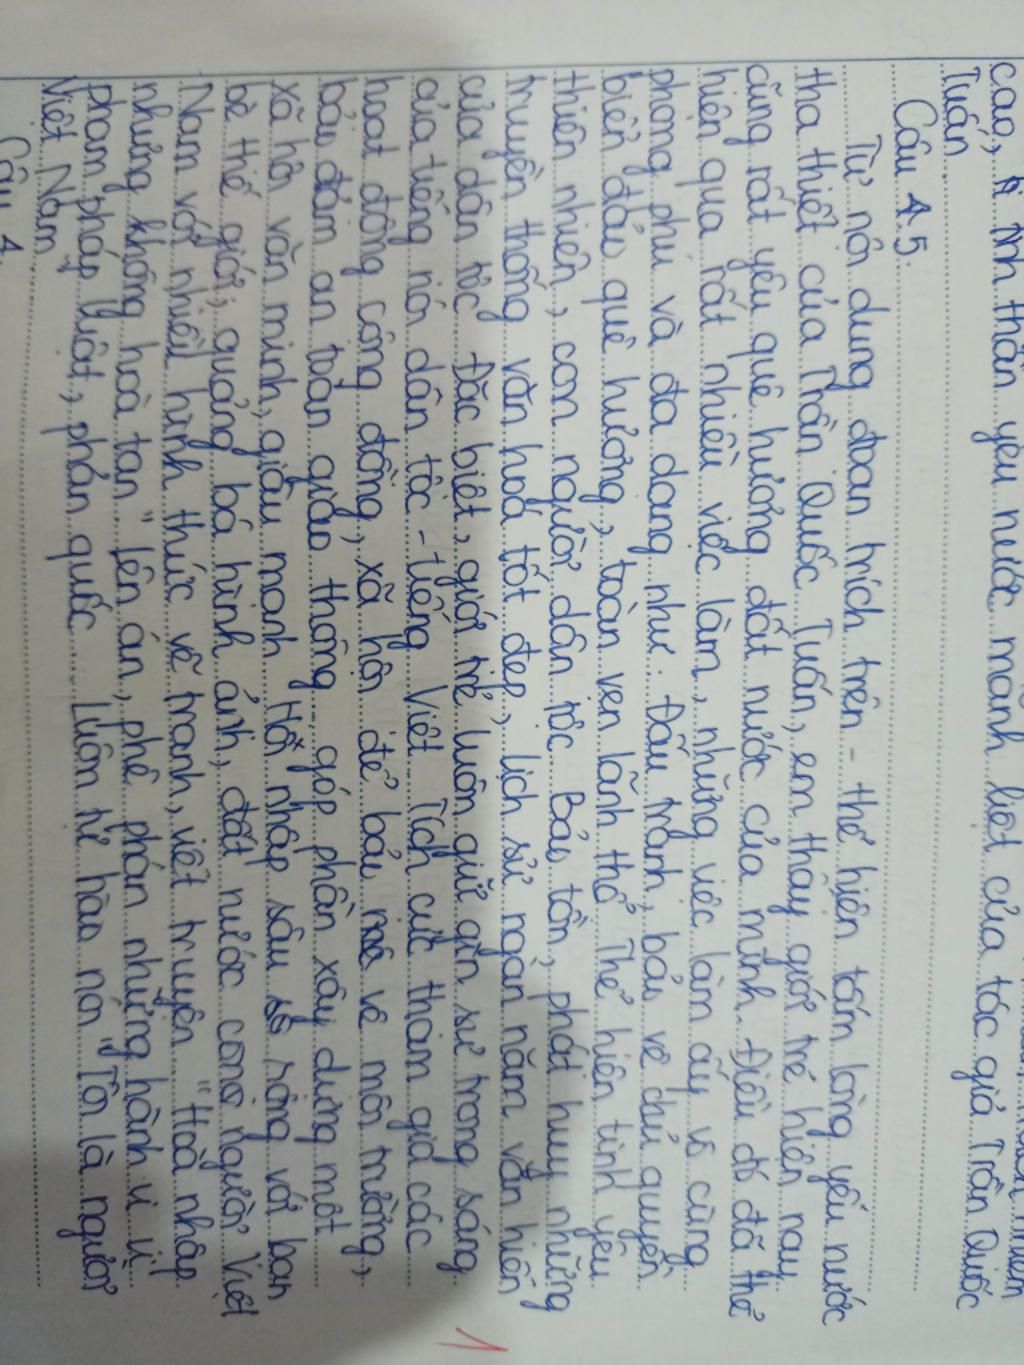 cao, tinh thần yêu nước mãnh liệt của tác giả Trần Quốc
Tuấn.
Câu 4.5.
Từ nội dung đoạn trích trên - thể hiện tấm lòng yêu nước
tha thiết của Trần Quốc Tuấn, em thấy giới trẻ hiện nay
cũng rất yêu quê hương đất nước của mình. Điều đó đã thể
hiện qua rất nhiều việc làm, những việc làm ấy vô cùng
phong phú và đa dạng như: Đấu tranh, bảo vệ chủ quyền
biển đảo quê hương, toàn vẹn lãnh thổ. Thể hiện tình yêu
thiên nhiên, con người, dân tộc. Bảo tồn, phát huy những
truyền thống văn hoá tốt đẹp, lịch sử ngàn năm văn hiến
của dân tộc. Đặc biệt, giới trẻ luôn giữ gìn sự trong sáng
của tiếng nói dân tộc - tiếng Việt. Tích cực tham gia các
hoạt động công đồng, xã hội để bảo vệ môi trường,
bảo đảm an toàn giao thông, góp phần xây dựng một
xã hội văn minh, giàu mạnh. Hội nhập sâu rộng với bạn
bè thế giới, quảng bá hình ảnh, đất nước con người Việt
Nam với nhiều hình thức vẽ tranh, viết truyện. "Hoà nhập
nhưng không hoà tan". Lên án, phê phán những hành vi vi
phạm pháp luật, phản quốc. Luôn tự hào nói "Tôi là người
Việt Nam"
Câu 4.
1